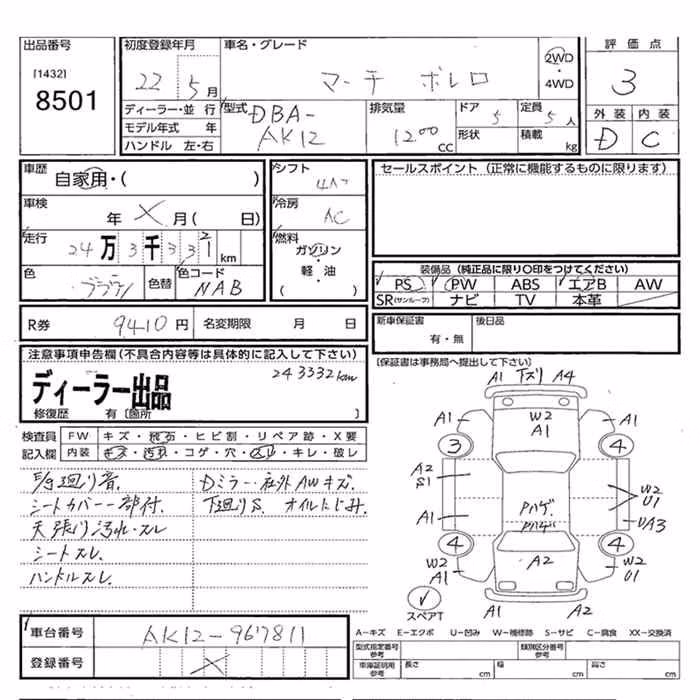 出品番号 初度登録年月 車名・グレード 評価点
[1432]
8501
22 5月 マーチ ボレロ 2WD・4WD 3
ディーラー・並行 型式 DBA-AK12 排気量 1200 CC ドア 5 定員 5人 外装 内装
モデル年式 年 形状 積載 kg D C
ハンドル 左・右
車歴 自家用・( ) シフト 4AT セールスポイント (正常に機能するものに限ります)
車検 年 X 月( 日) 冷房 AC
走行 24万3千33 km 燃料 ガソリン・軽・油 ( )
色 色替 色コード NAB
装備品 (純正品に限り○印をつけてください)
PS PW ABS エアB AW
SR(サンルーフ) ナビ TV 本革
R券 9410円 名変期限 月 日
新車保証書 有・無 後日品
[保証書は事務局へ提出して下さい]
注意事項申告欄(不具合内容等は具体的に記入して下さい)
243332km
ディーラー出品
修復歴 有 [箇所 ]
検査員 FW キズ・飛石・ヒビ割・リペア跡・X要
記入欄 内装 キズ・汚れ・コゲ・穴・スレ・キレ・破レ
E/g廻り音.
シートカバー一部付.
天張り汚れ・スレ
シートスレ.
ハンドルスレ.
Dミラー・社外AWキズ.
下廻りS. オイルにじみ.
A1 下ズリ A4
A1 W2 A1 A1
3 4
A2 S1
W2 U1
A1 Pハゲ Pハゲ UA3
4 4
W2 A1 A2 W2 U1
スペアT A1 A2
車台番号 AK12-967811
登録番号
A-キズ E-エクボ U-凹み W-補修跡 S-サビ C-腐食 XX-交換済
型式指定番号 参考 類別区分番号 参考
車庫証明用 参考 長さ cm 幅 cm 高さ cm